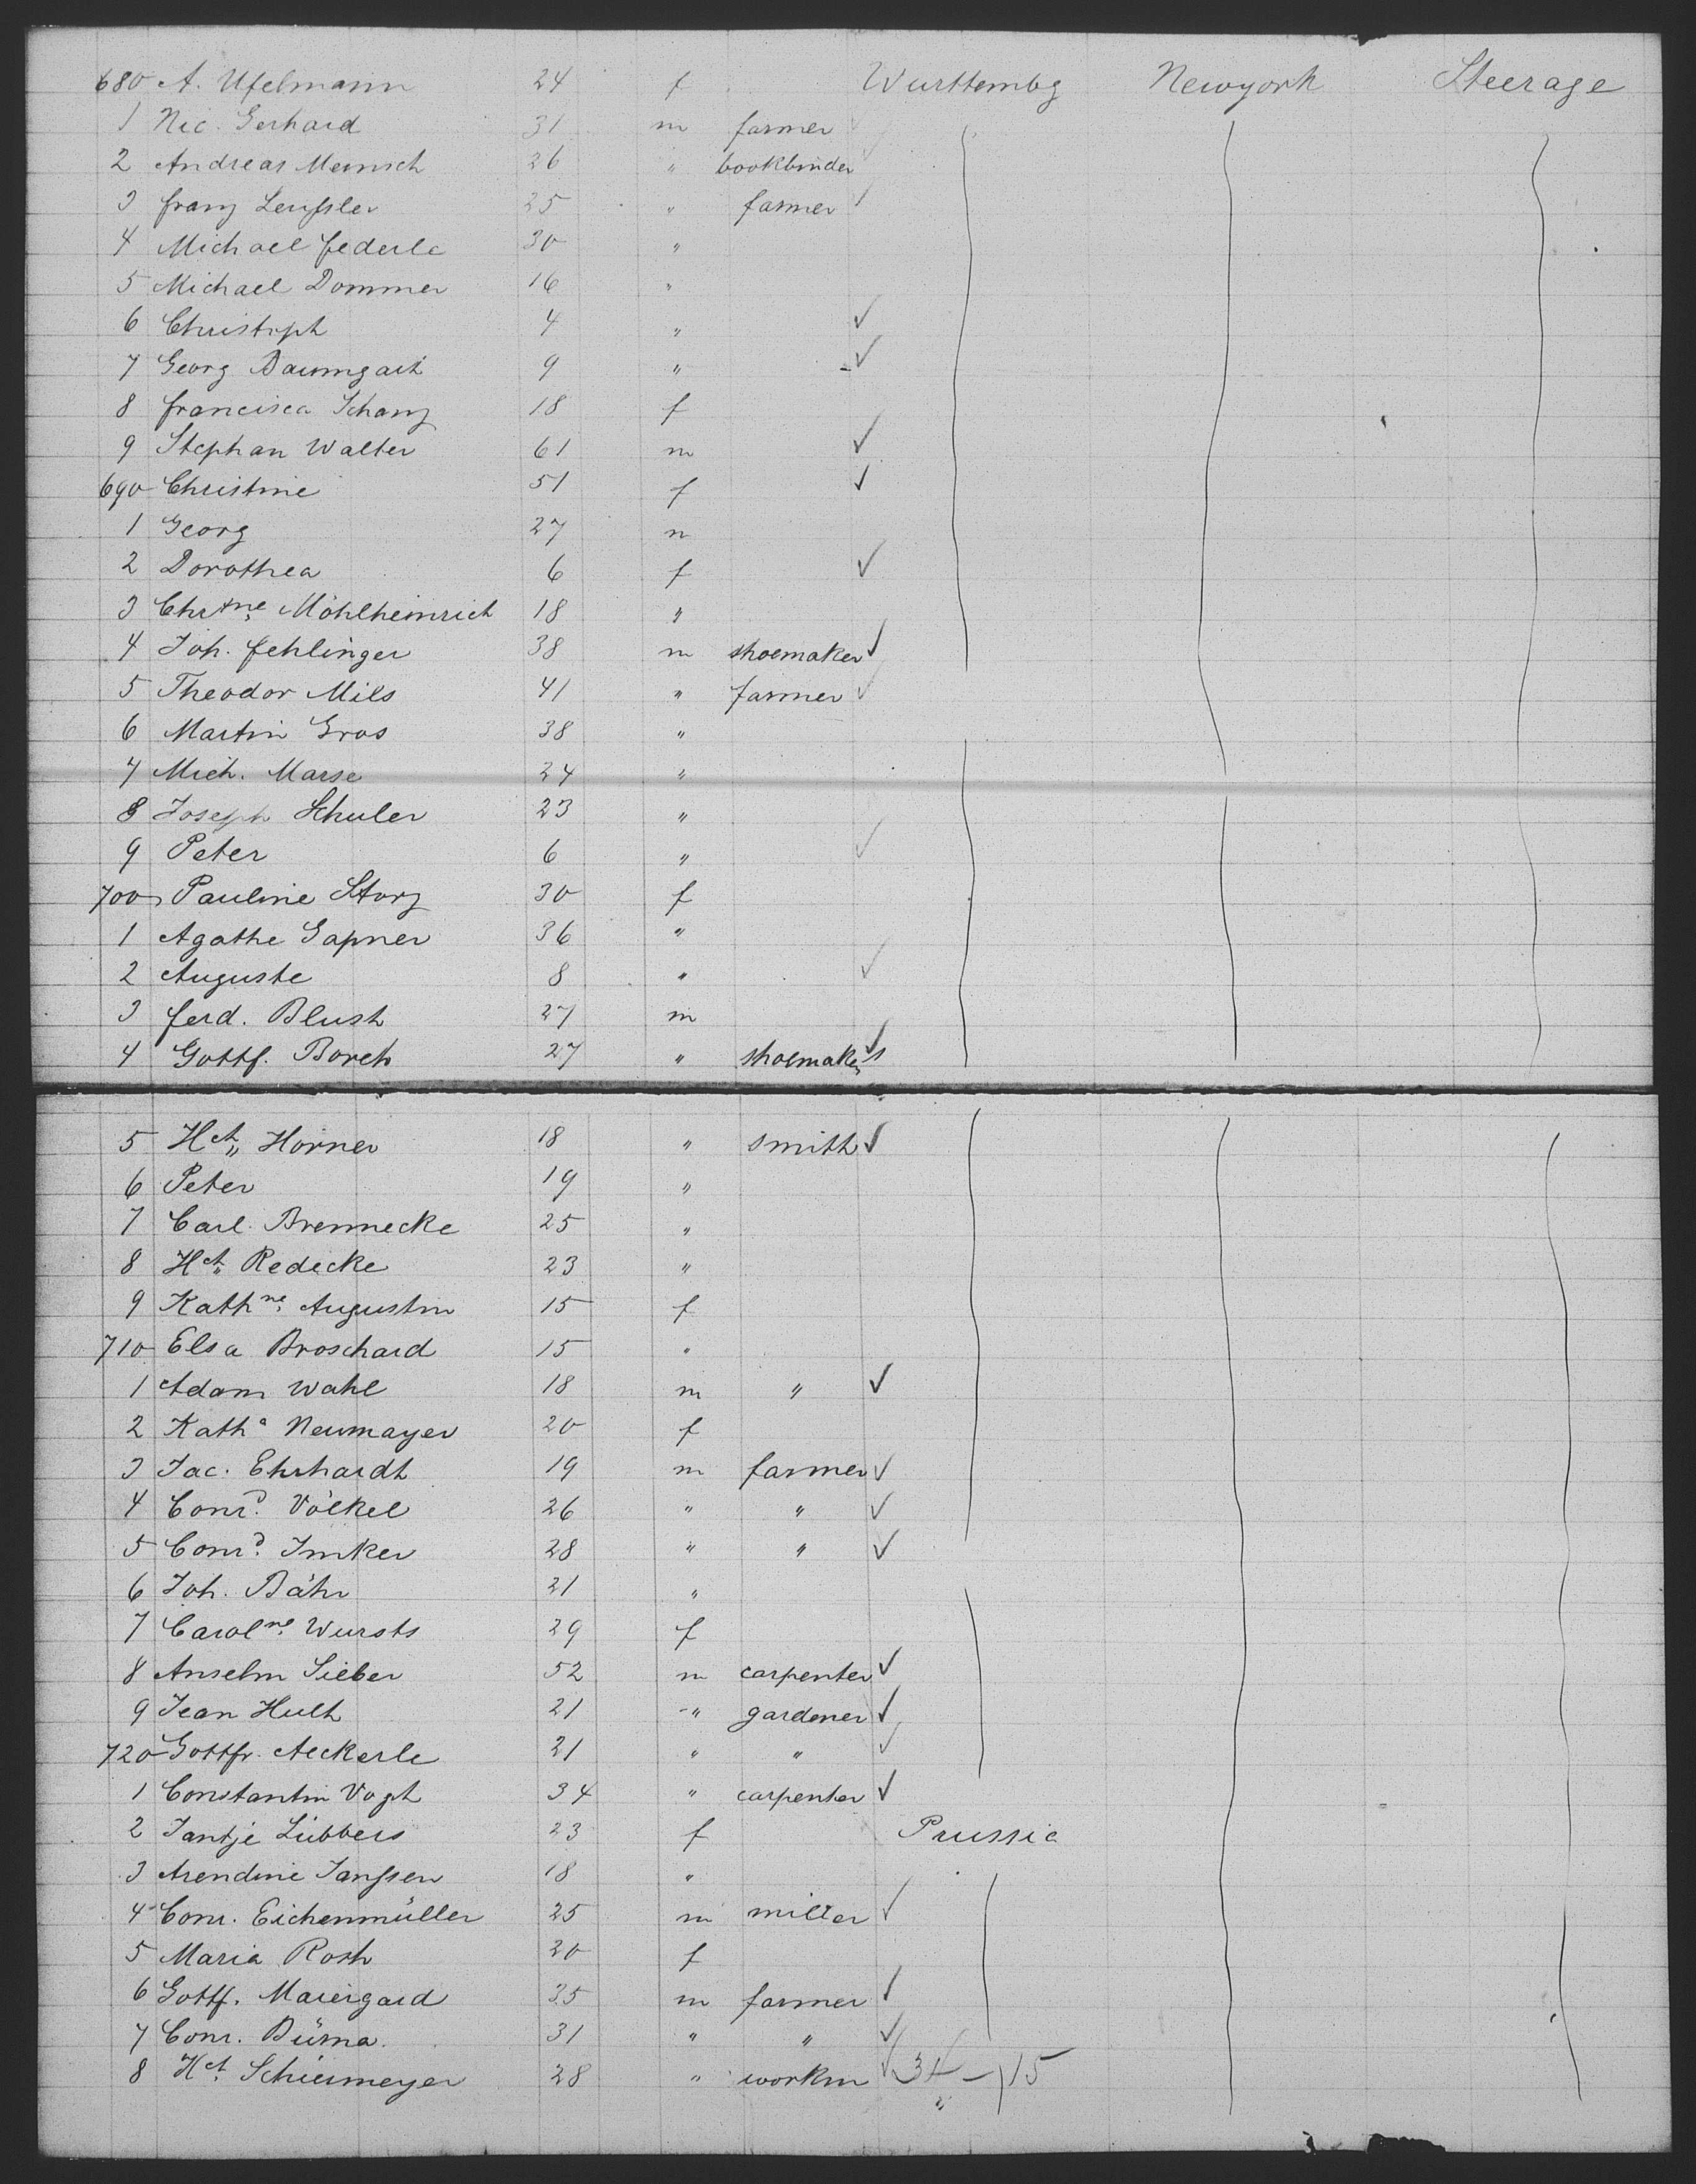 680 A. Ufelmann 24 f Wurttembg Newyork Steerage
1 Nic. Gerhard 31 m farmer
2 Andreas Mensch 26 " bookbinder
3 Franz Leußler 25 " farmer ✓
4 Michael Federle 30 "
5 Michael Dommer 16 "
6 Christoph 4 " ✓
7 Georg Baumgart 9 " ✓
8 Francisca Schanz 18 f
9 Stephan Walter 61 m ✓
690 Christine 51 f ✓
1 Georg 27 m
2 Dorothea 6 f ✓
3 Chrtne Möhlheinrich 18 "
4 Joh. Fehlinger 38 m shoemaker ✓
5 Theodor Mils 41 " farmer ✓
6 Martin Gros 38 "
7 Mich. Marse 24 "
8 Joseph Schuler 23 "
9 Peter 6 " ✓
700 Pauline Storz 30 f
1 Agathe Gapner 36 "
2 Auguste 8 " ✓
3 Ferd. Blush 27 m
4 Gottf. Borch 27 " shoemaker ✓
5 Hch Horner 18 " smith ✓
6 Peter 19 "
7 Carl Brennecke 25 "
8 Hch Redecke 23 "
9 Kathne Augustin 15 f
710 Elsa Broschard 15 "
1 Adam Wahl 18 m " ✓
2 Katha Neumayer 20 f
3 Jac. Ehrhardt 19 m farmer ✓
4 Conrd. Völkel 26 " " ✓
5 Conrd. Imker 28 " " ✓
6 Joh. Bähr 21 "
7 Carolne Wursts 29 f
8 Anselm Sieber 52 m carpenter ✓
9 Jean Hulh 21 " gardener ✓
720 Gottfr. Aeckerle 21 " " ✓
1 Constantin Vogt 34 " carpenter ✓
2 Jantje Lübbers 23 f Prussia
3 Arendine Janßen 18 "
4 Conr. Eichenmüller 25 m miller ✓
5 Maria Roth 20 f
6 Gottf. Maiergard 35 m farmer ✓
7 Conr. Büma 31 " " ✓
8 Hch Schiermeyer 28 " workm ✓ 31 – 15